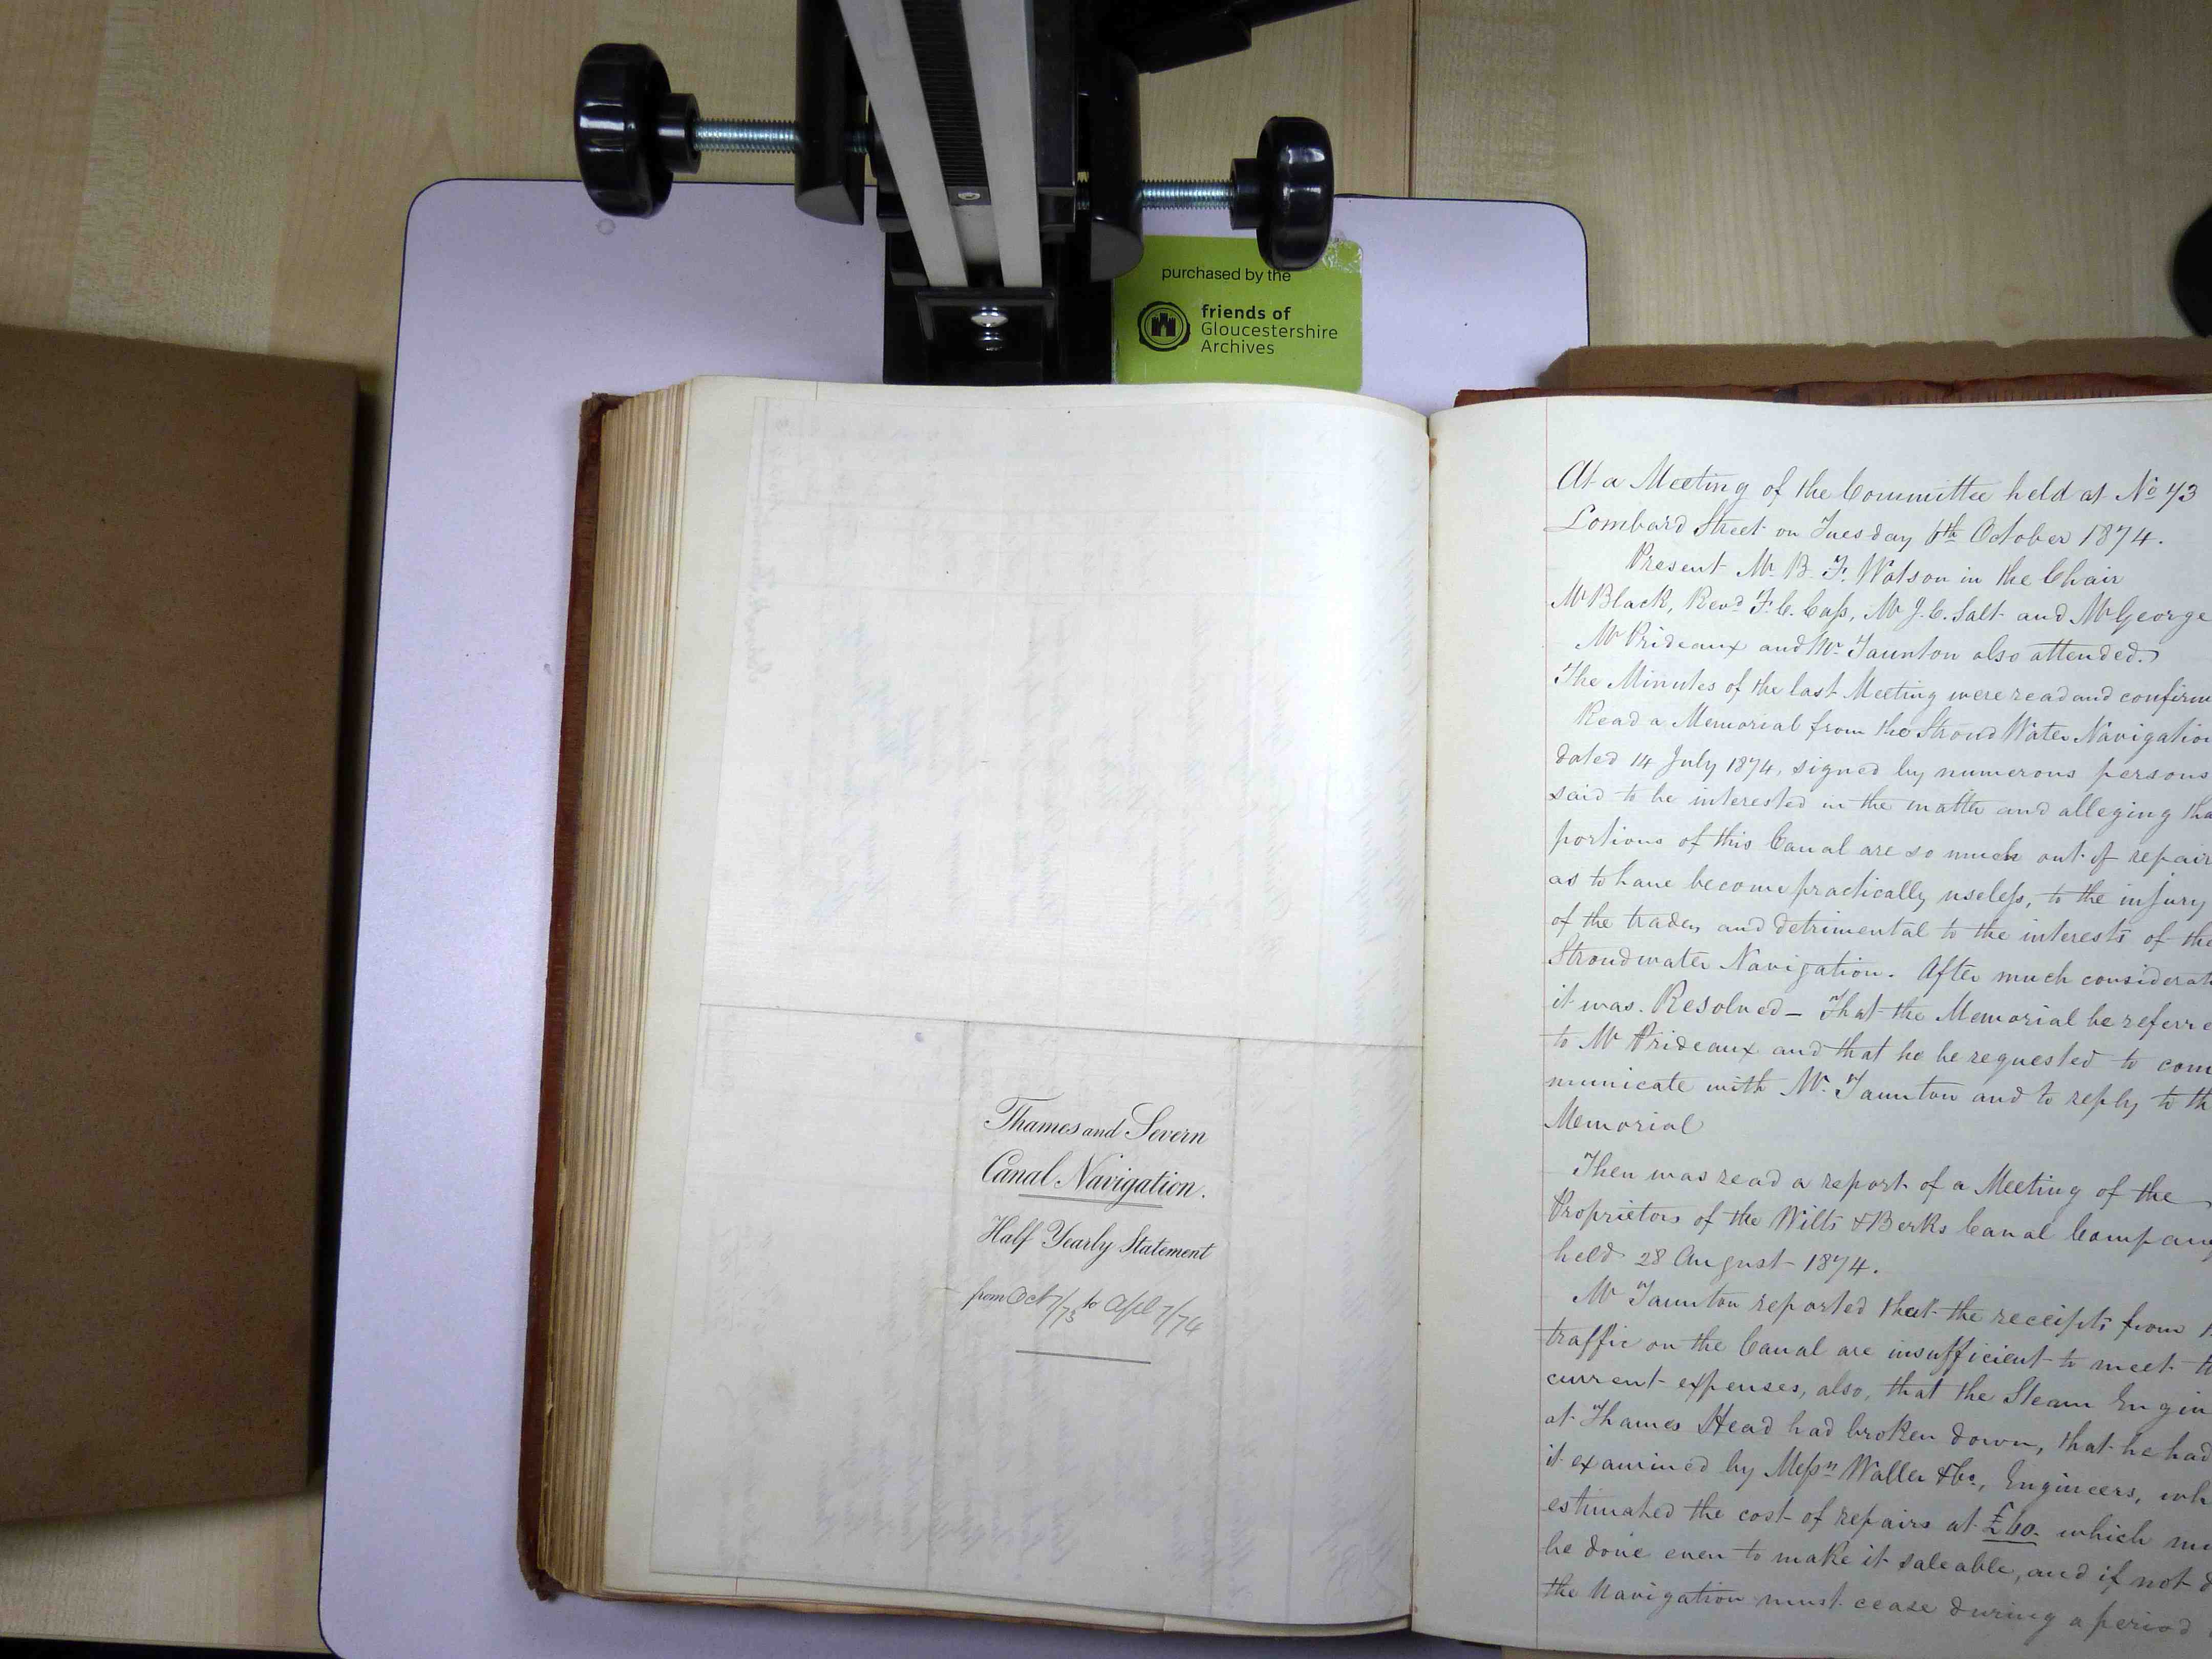 purchased by the
friends of
Gloucestershire
Archives
Thames and Severn
Canal Navigation.
Half Yearly Statement
from Oct 7/73 to Apl 7/74
At a Meeting of the Committee held at No 73
Lombard Street on Tuesday 6th October 1874.
Present Mr. B. F. Watson in the Chair
Mr Black, Revd F. C. Cass, Mr J. C. Salt and Mr George
Mr Prideaux and Mr. Taunton also attended.
The Minutes of the last Meeting were read and confirm
Read a Memorial from the Stroud Water Navigation
dated 14 July 1874, signed by numerous persons
said to be interested in the matter and alleging tha
portions of this Canal are so much out of repair
as to have become practically useless, to the injury
of the trader, and detrimental to the interests of the
Stroudwater Navigation. After much considerat
it was. Resolved – That the Memorial be referre
to Mr Prideaux and that he be requested to com
municate with Mr. Taunton and to reply to th
Memorial
Then was read a report of a Meeting of the
Proprietors of the Wilts & Berks Canal Company
held 28 August 1874.
Mr Taunton reported that the receipts from
traffic on the Canal are insufficient to meet
current expenses, also, that the Steam Engin
at Thames Head had broken down, that he had
it examined by Messrs Waller & Co., Engineers, wh
estimated the cost of repairs at £60. which mu
be done even to make it saleable, and if not d
the Navigation must cease during a period